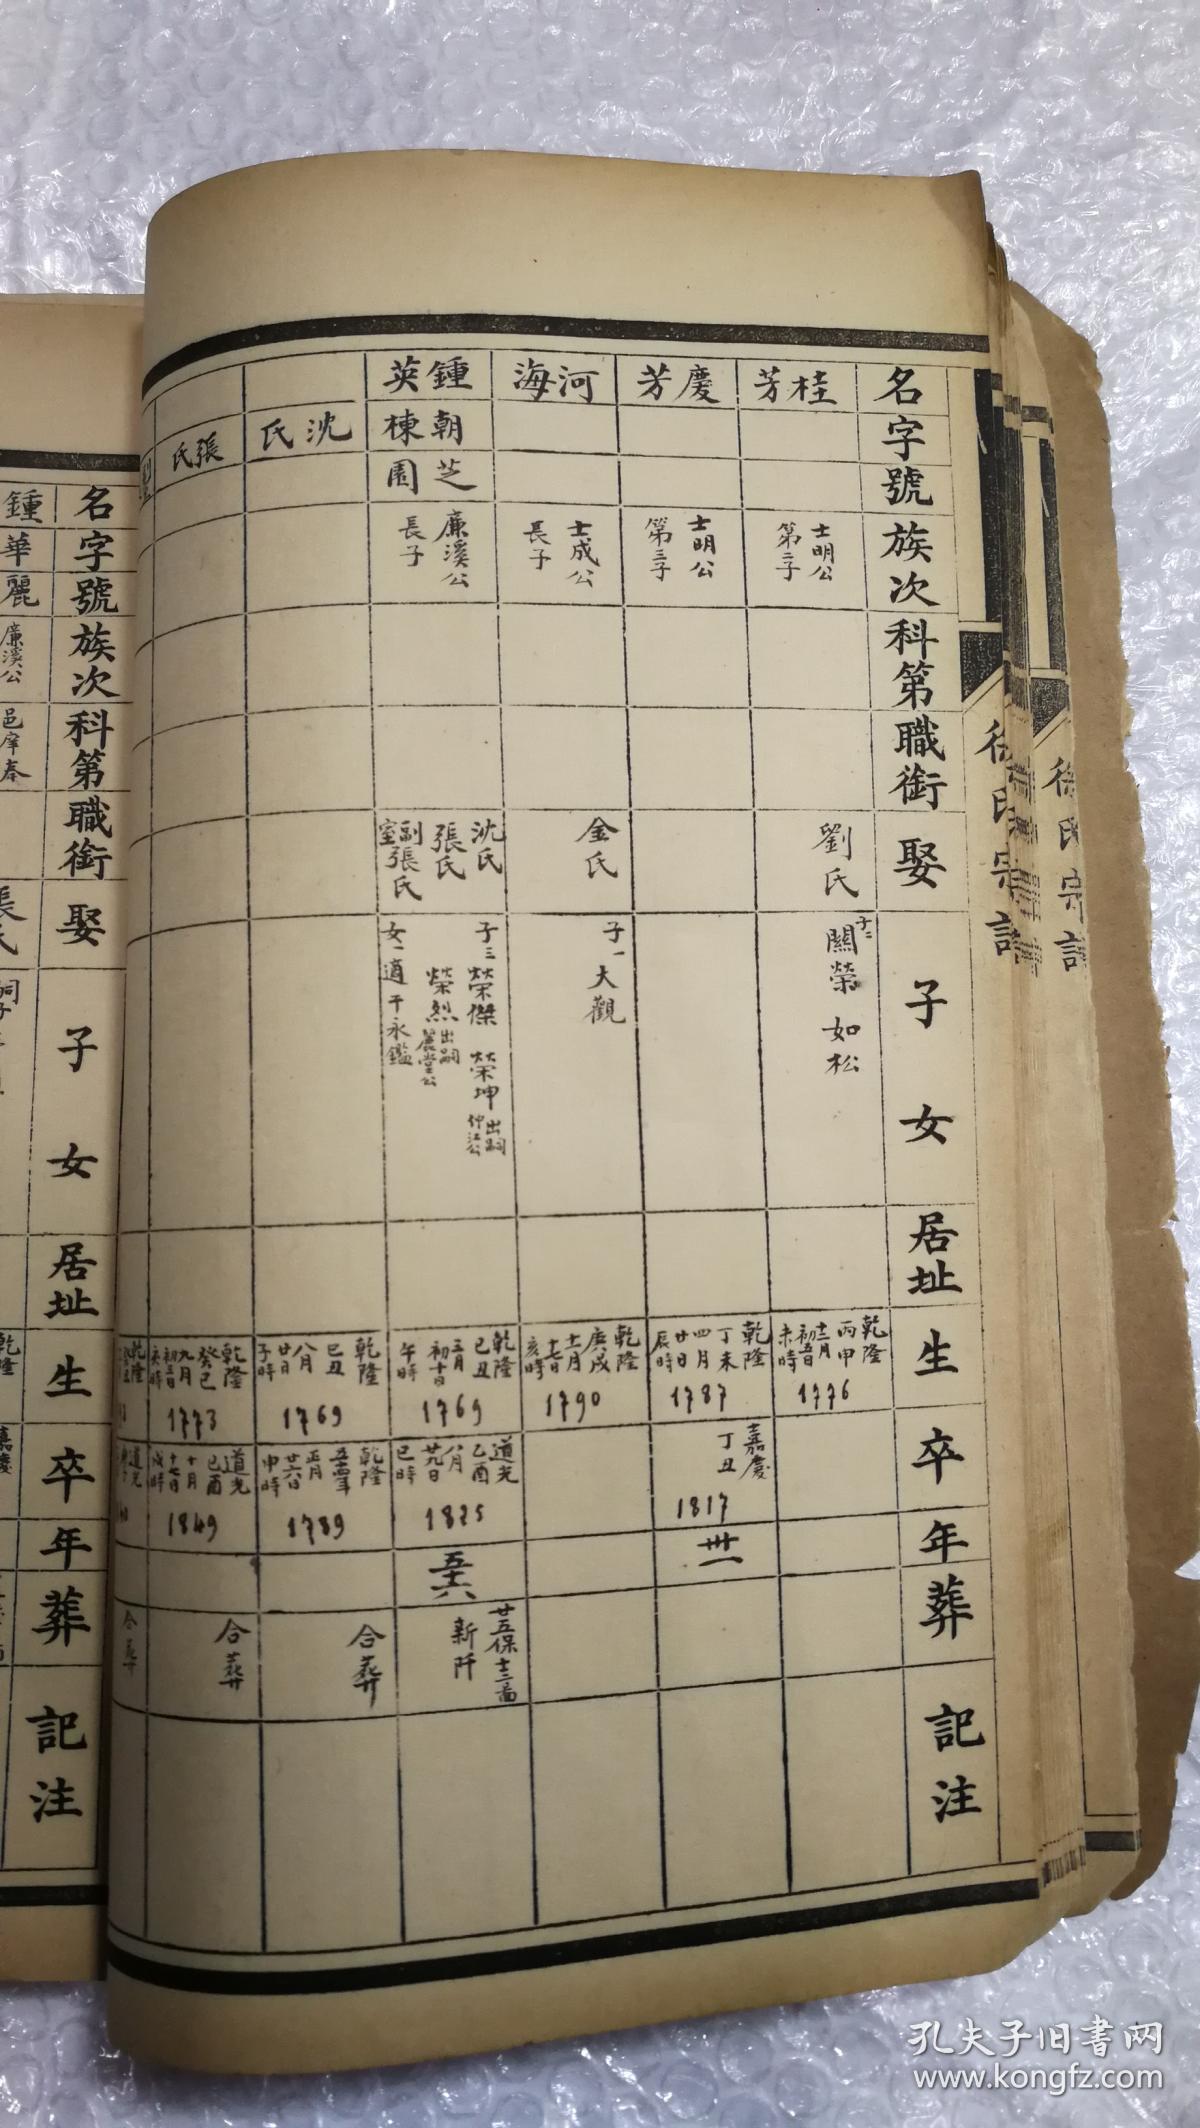 名
字
號
族次
科第
職銜
娶
子女
居址
生
卒
年
葬
記注
桂芳
士明公
第二子
劉氏
子二
關榮 如松
乾隆
丙申
十二月
初五日
未時
1776
慶芳
士明公
第三子
乾隆
丁未
四月
廿日
辰時
1787
嘉慶
丁丑
1817
卅一
河海
士成公
長子
金氏
子一
大觀
乾隆
庚戌
十二月
十七日
亥時
1790
鍾英
朝棟
芝園
廉溪公
長子
沈氏
張氏
副室張氏
子三 榮傑 榮坤 出嗣
榮烈 出嗣麗堂公
女一 適干永鑑
乾隆
己丑
三月
初十日
午時
1769
道光
乙酉
八月
廿九日
巳時
1825
五十六
廿五保十三啚
新阡
沈氏
乾隆
己丑
八月
廿日
子時
1769
乾隆
五十四年
正月
廿六日
申時
1789
合葬
張氏
乾隆
癸巳
九月
初五日
時
1773
道光
己酉
十月
十七日
戌時
1849
合葬
乾隆
道光
合葬
名
字
號
族次
科第
職銜
娶
子女
居址
生
卒
年
葬
記注
鍾
華
麗
廉溪公
邑庠
張氏
嗣子
乾隆
嘉慶
徐氏宗譜
孔夫子旧书网
www.kongfz.com